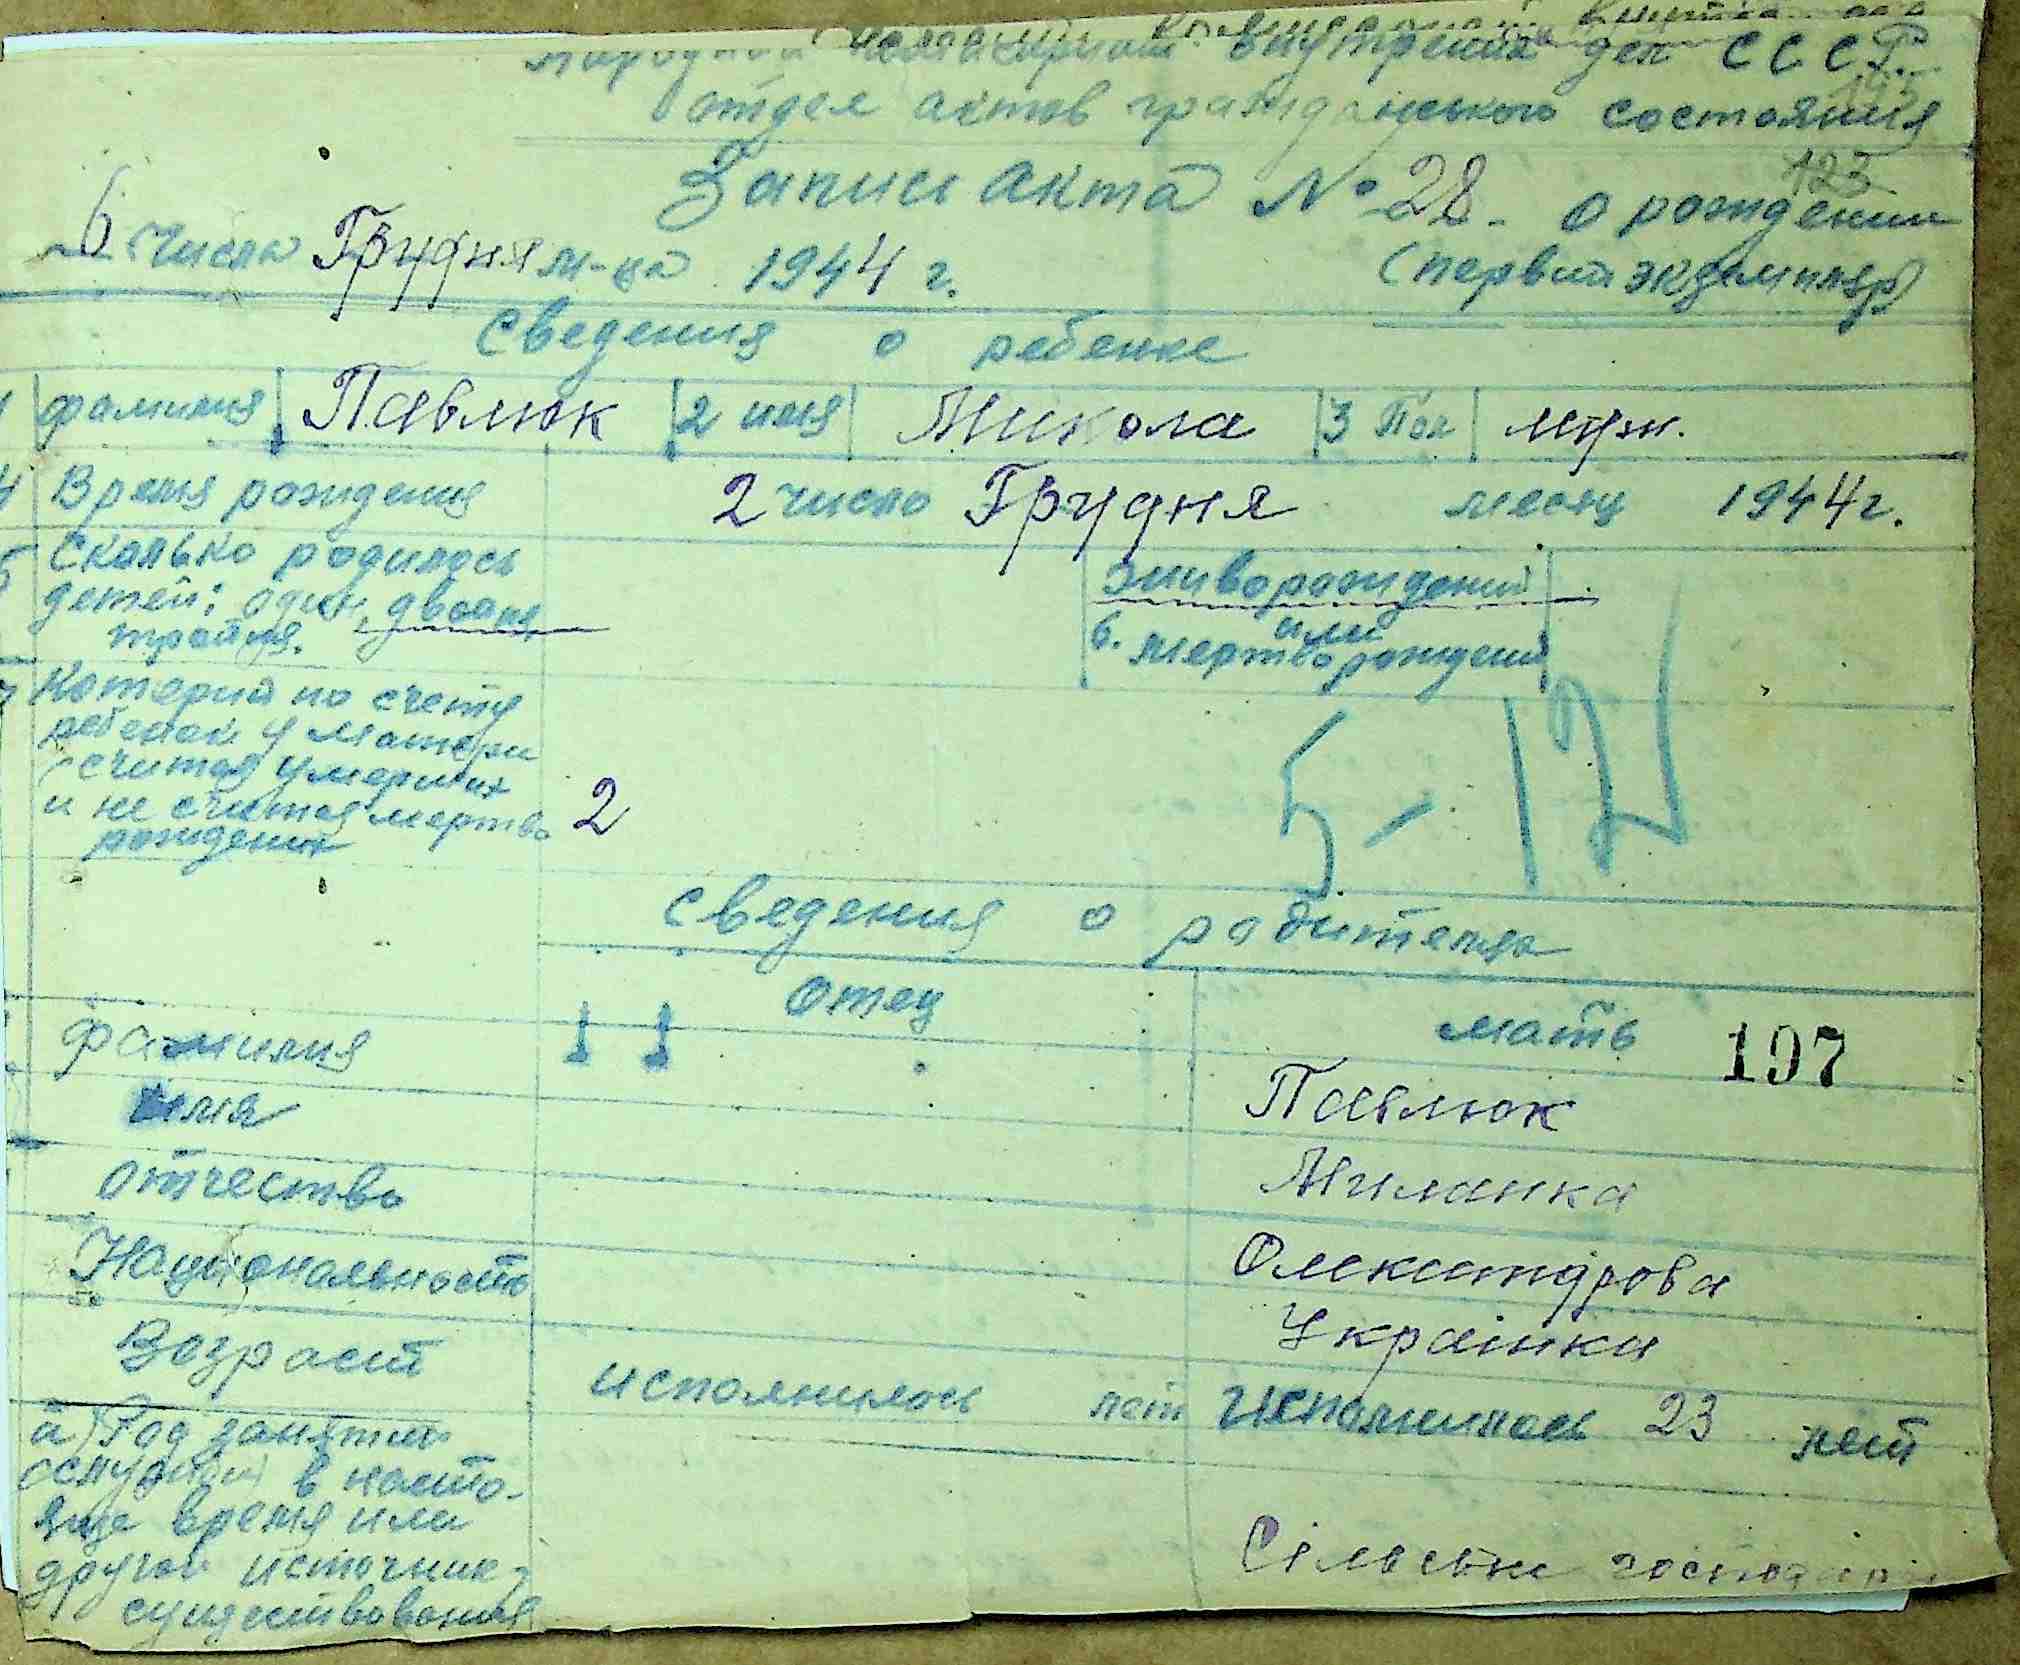 народной комисариат внутрених дел СССР
отдел актов гражданського состояния
123
Запись акта № 28. о рождении
6 числа Грудня м-ца 1944 г.
(первий экземпляр)
Сведения о ребенке
фамилия Павлюк 2 имя Микола 3 Пол муж.
4 Время рождения 2 число Грудня месяц 1944г.
5 Сколько родилось
детей: один, двойня,
тройня.
живорождений
или
6. мертворождений
Которий по счету
ребенок у матери
считая умерших
и не считая мертво
рождених
2
5-12
Сведения о родителях
Отец
мать
197
фамилия Павлюк
имя Миланка
отчество Олександрова
Национальность Українка
Возраст исполнилось лет Исполнилось 23 лет
а) Род занятия
(служби) в насто-
яще время или
другой источник
существования
Сільське господар